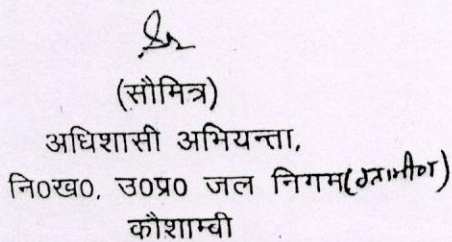 (सौमित्र)
अधिशासी अभियन्ता,
नि0ख0, उ0प्र0 जल निगम(ग्रामीण)
कौशाम्वी